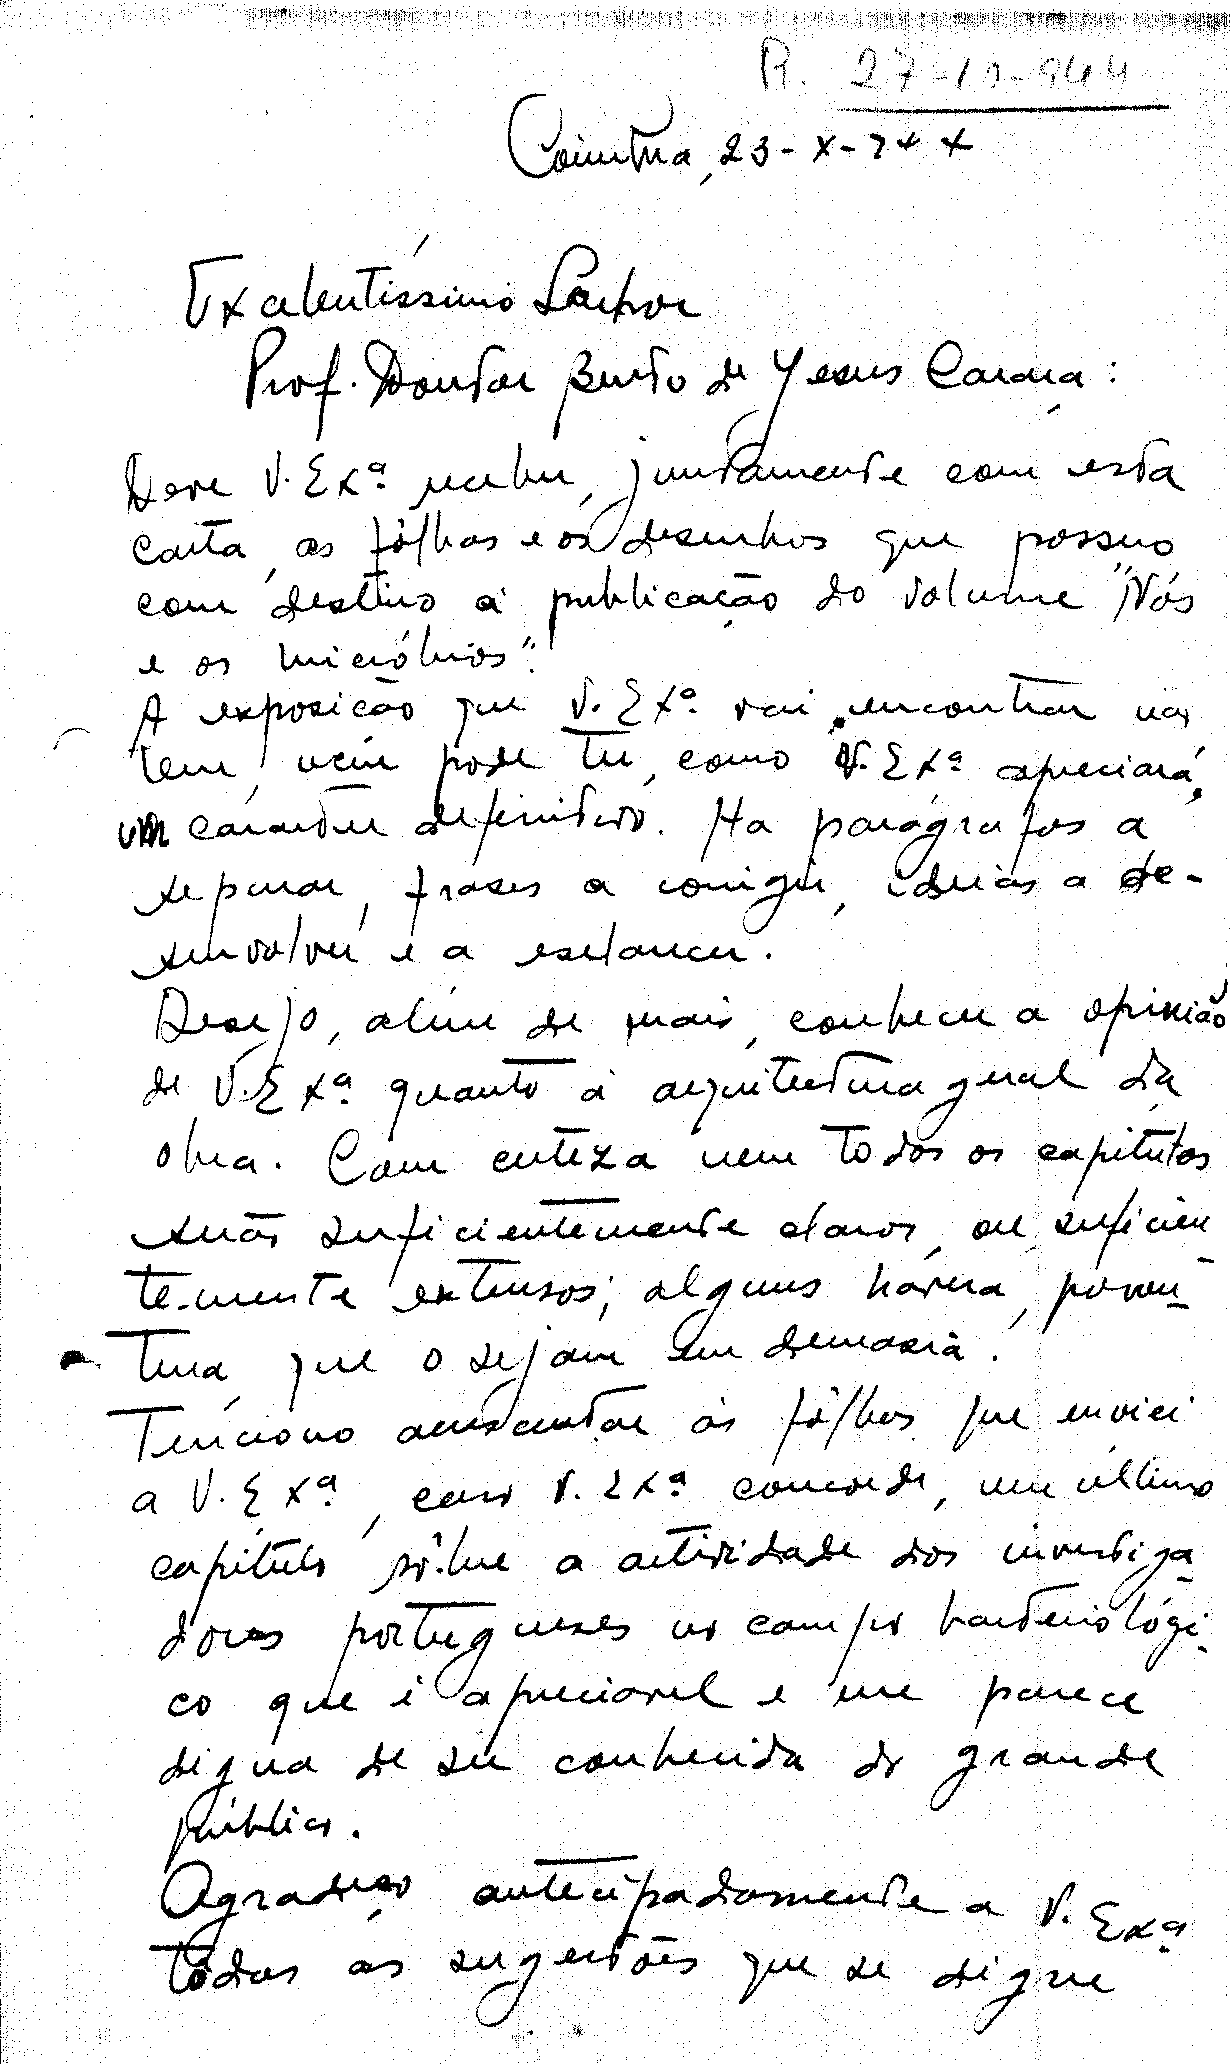 R. 27-10-944
Coimbra, 23-X-944
Excelentíssimo Senhor
Prof. Doutor Bento de Jesus Caraça:
Deve V. Exª receber, juntamente com esta
carta, as fôlhas e os desenhos que possuo
com destino à publicação do volume "Nós
e os micróbios".
A exposição que V. Exª vai encontrar não
tem, nem pode ter, como V. Exª apreciará,
um carácter definitivo. Ha parágrafos a
separar, frases a corrigir, ideias a de-
senvolver e a esclarecer.
Desejo, além de mais, conhecer a opinião
de V. Exª quanto à arquitectura geral da
obra. Com certeza nem todos os capítulos
serão suficientemente claros, ou suficien
temente extensos; alguns haverá, porven-
tura, que o sejam em demasia.
Tenciono acrescentar às fôlhas que enviei
a V. Exª, caso V. Exª concorde, um último
capítulo sôbre a actividade dos investiga-
dores portugueses no campo bacteriológi-
co que é apreciavel e me parece
digna de ser conhecida do grande
público.
Agradeço antecipadamente a V. Exª
tôdas as sugestões que se digne